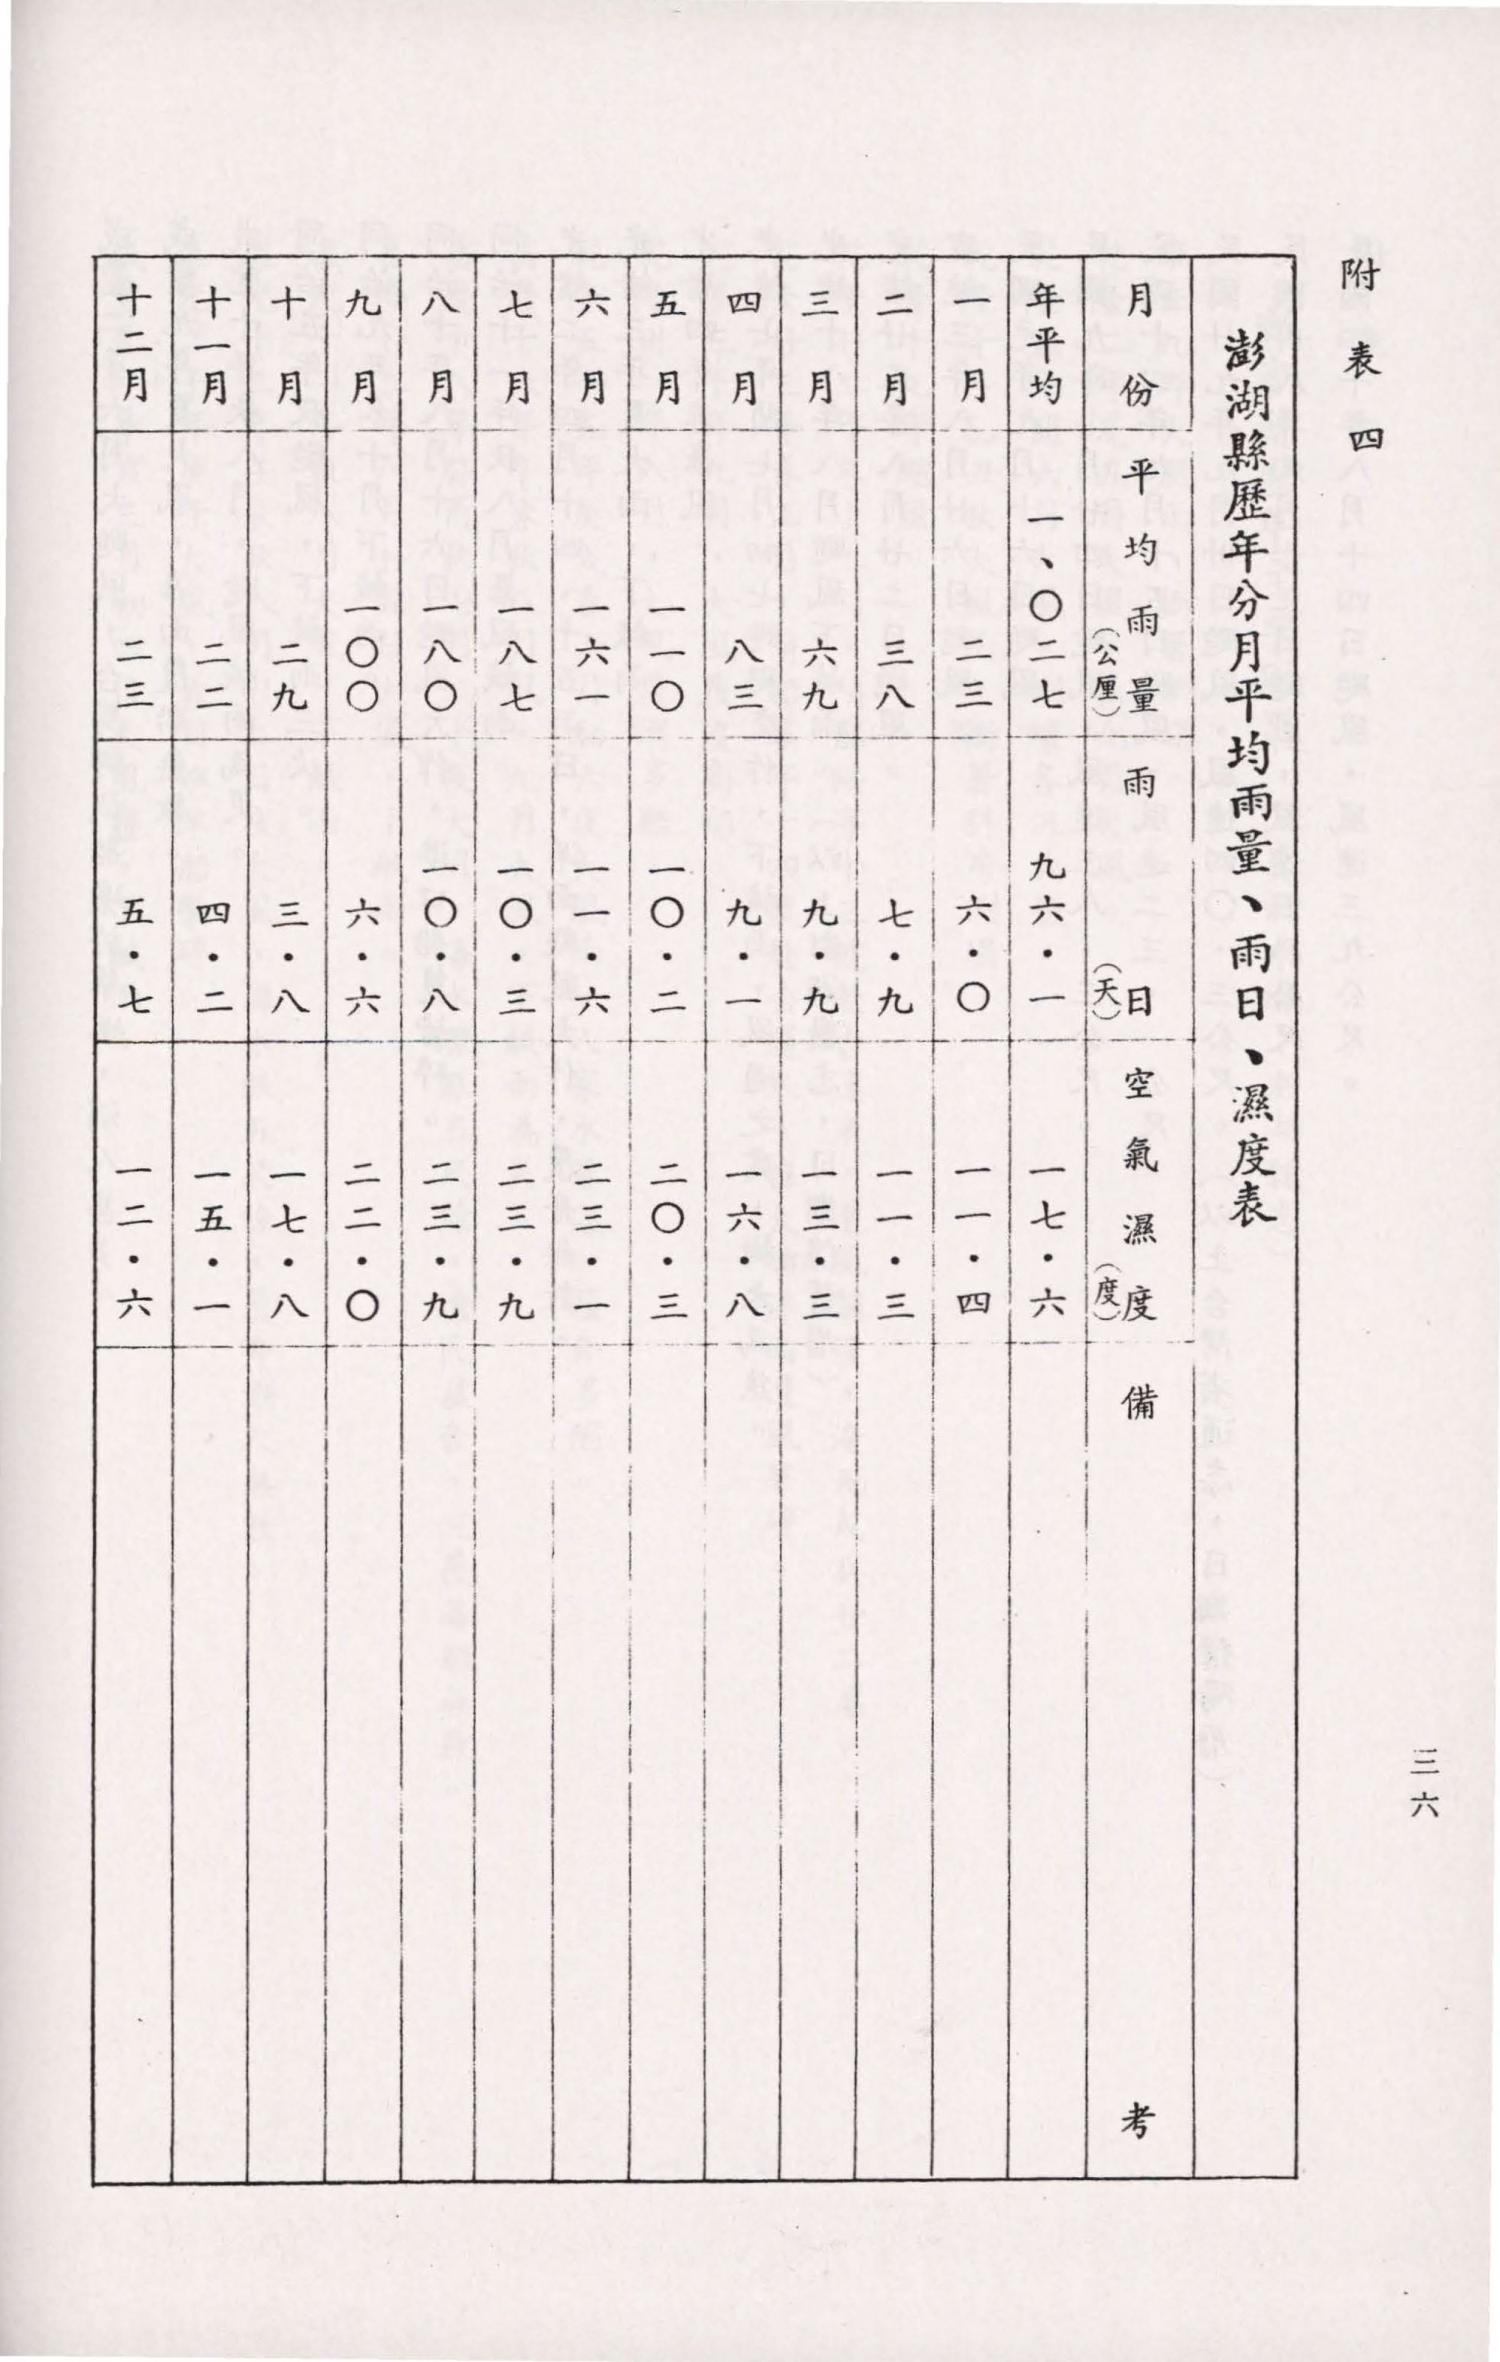 附表四
澎湖縣歷年分月平均雨量、雨日、濕度表
月份 平均雨量(公厘) 雨日(天) 空氣濕度(度) 備考
年平均 一、〇二七 九六・一 一七・六
一月 二三 六・〇 一一・四
二月 三八 七・九 一一・三
三月 六九 九・九 一三・三
四月 八三 九・一 一六・八
五月 一一〇 一〇・二 二〇・三
六月 一六一 一一・六 二三・一
七月 一八七 一〇・三 二三・九
八月 一八〇 一〇・八 二三・九
九月 一〇〇 六・六 二二・〇
十月 二九 三・八 一七・八
十一月 二二 四・二 一五・一
十二月 二三 五・七 一二・六
三六